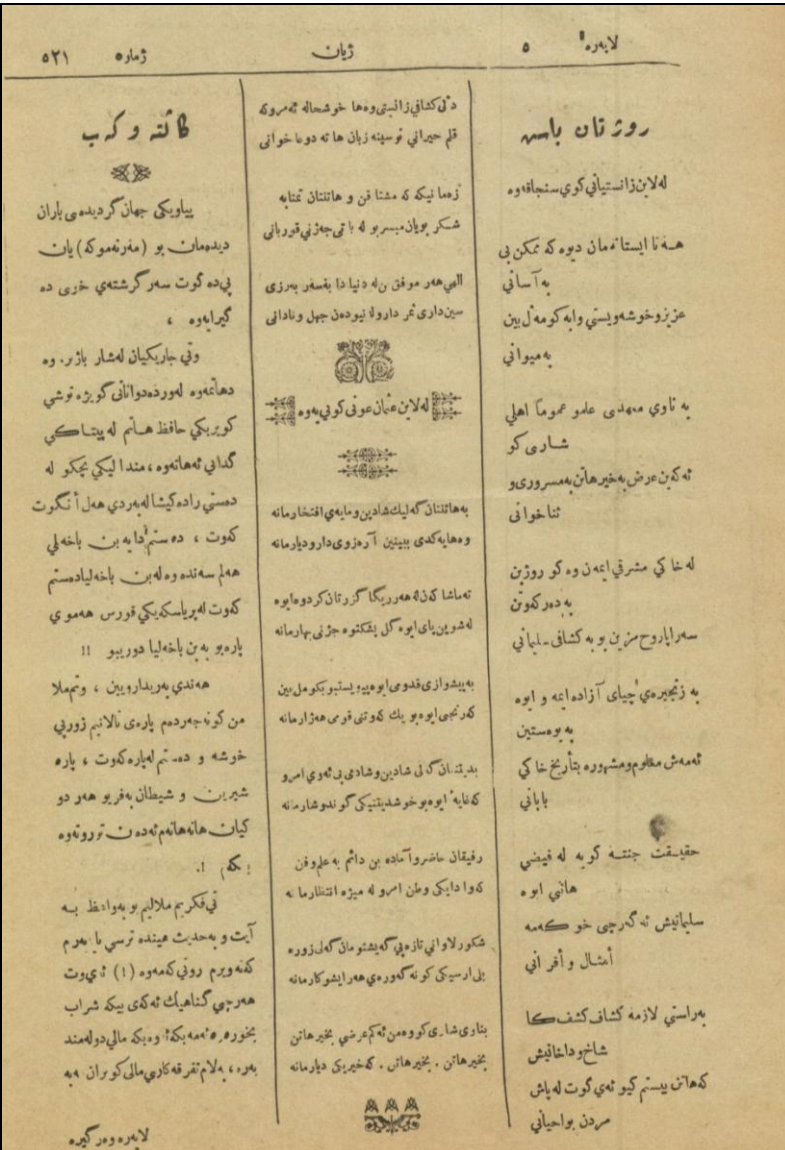 لاپەرە ٥
ژیان
ژمارە ٥٢١
روژتان باسە
لەلاین زانستیانی کوی سنجاقەوە
هەتا ایستا نەمان دیوە کە ممکن بی
بەآسانی
عزیزوخوشەویستی وابەکومەل بین
بەمیوانی
بە ناوی معهدی علمو عموماً اهلی
شاری کو
ئەکەین عرض بەخیرهاتن بەمسروری و
ثناخوانی
لەخاکی مشرقی ایمەن وەکو روژین
بەدەرکەوتن
سەراپاروح مزین بو بە کشافی سلیمانی
بە زنجیرەی چیای آزادە ایمە و ایوە
پەیوەستین
ئەمەش معلوم ومشهورە بتأریخ خاکی
بابانی
حقیقت جنتە کویە لە فیضی
هاتی ایوە
سلیمانیش ئەگەرچی خو کەمە
أمثال و أقرانی
بەراستی لازمە کشاف کشف کا
شاخ و داخانیش
کەهاتن بیستم کیو ئەی گوت لەپاش
مردن بواحیانی
دلی کشافی زانستی وەها خوشحالە ئەمروکە
قلم حیرانی نوسینە زبان هاتە دوعا خوانی
زەمانیکە کە مشتاقن و هاتنتان تمنایە
شکر بویان میسربو لە باتی جەژنی قوربانی
الهی هەر موفق بن لە دنیادا بفسفر بەرزی
سین داری ثمر دارولە نیودەن جهل و نادانی
لەلاین عثمان عونی کویی یەوە
بەهاتنتان گەلیك شادین ومایەی افتخارمانە
وەهایەکدی ببینین آرەزوی دارودیارمانە
تەماشاکەن لەهەرریگا گزرتان کردوەایوە
لەشوین پای ایوە گل پشکتوە جژنی بهارمانە
بەپیشوازی قدومی ایوە پیویستبو بکومل بین
کەرنجی ایوە بو یك کەوتنی قومی هەژارمانە
بدیتنتان گەلی شادین وشادی بی ئەوی امرو
کەغایۀ ایوەبو خوشدیتنیکی گوندوشارمانە
رفیقان حاضروآمادە بن دائم بە علم وفن
کەوا دایکی وطن امرو لە میژە انتظارمانە
شکور لاوانی تازەپی گەیشتومان گەلی زورە
بلی ارسیکی کونە گەورەی هەر ایشوکارمانە
بناری شاری کووەمن ئەکم عرضی بخیرهاتن
بخیرهاتن . بخیرهاتن . کەخیریکی دیارمانە
گالتە و گەپ
پیاویکی جهان گردیدەی باران
دیدەمان بو (مەرتەموکە) یان
پی دەگوت سەرگرشتەی خری دە
گیرایەوە ،
وتی جاریکیان لەشار باژیر. وە
دهاتمەوە لەوردەدوانانی گویژە توشی
کویریکی حافظ هاتم لە پیتاکی
گدانی ئەهاتەوە، مندالیکی بچکو لە
دەستی رادەکیشالەبەردی هەل أنگوت
کەوت ، دەستم دایە بن باخەلی
هەلم سەندەوە لەبن باخەلیادەستم
کەوت لەپریاسکەیکی قورس هەموی
پارەبو بەبن باخەلیا دوریبو !!
هەندی بەربدارویین ، وتم ملا
من کونە جەردەم پارەی تالانیم زورپی
خوشە و دەستم لەپارەکەوت ، پارە
شیرین و شیطان بەفریو هەردو
کیان هانەهانەم ئەدەن ترروتەوە
بکەم !.
تی فکریم ملالیم بو بەواعظ بە
آیت و بەحدیث هیندە ترسی با بەرم
کەنەویرم روتی کەمەوە (١) ئەیوت
هەرچی گناهیك ئەکەی بیکە شراب
بخورە، ئەمەبکە، ئەوەبکە مالی دولەمند
بەرە، بەلام تفرقەکاری مالی کویران مەبە
لاپەرە وەرگیرە